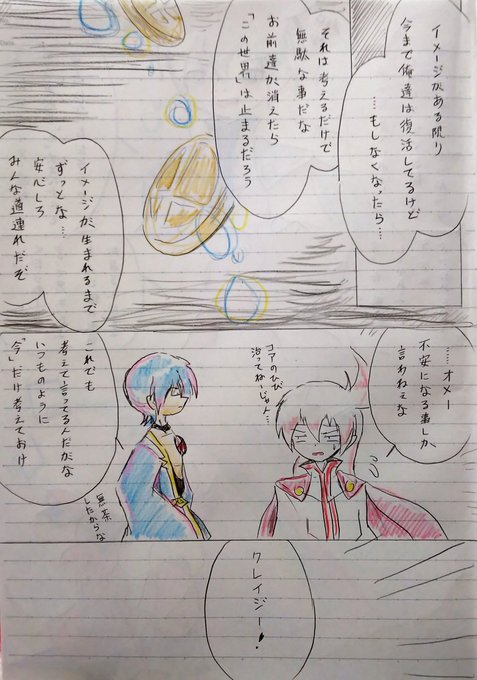 イメージがある限り
今まで俺達は復活してるけど
……もしなくなったら…
それは考えるだけで
無駄な事だな
お前達が消えたら
「この世界」は止まるだろう
イメージが生まれるまで
ずっとな…
安心しろ
みんな道連れだぞ
……オメー
不安になる事しか
言わねぇな
コアのひび
治ってねーじゃん…
これでも
考えて言ってるんだがな
いつものように
「今」だけ考えておけ
無茶
したからな
クレイジー！